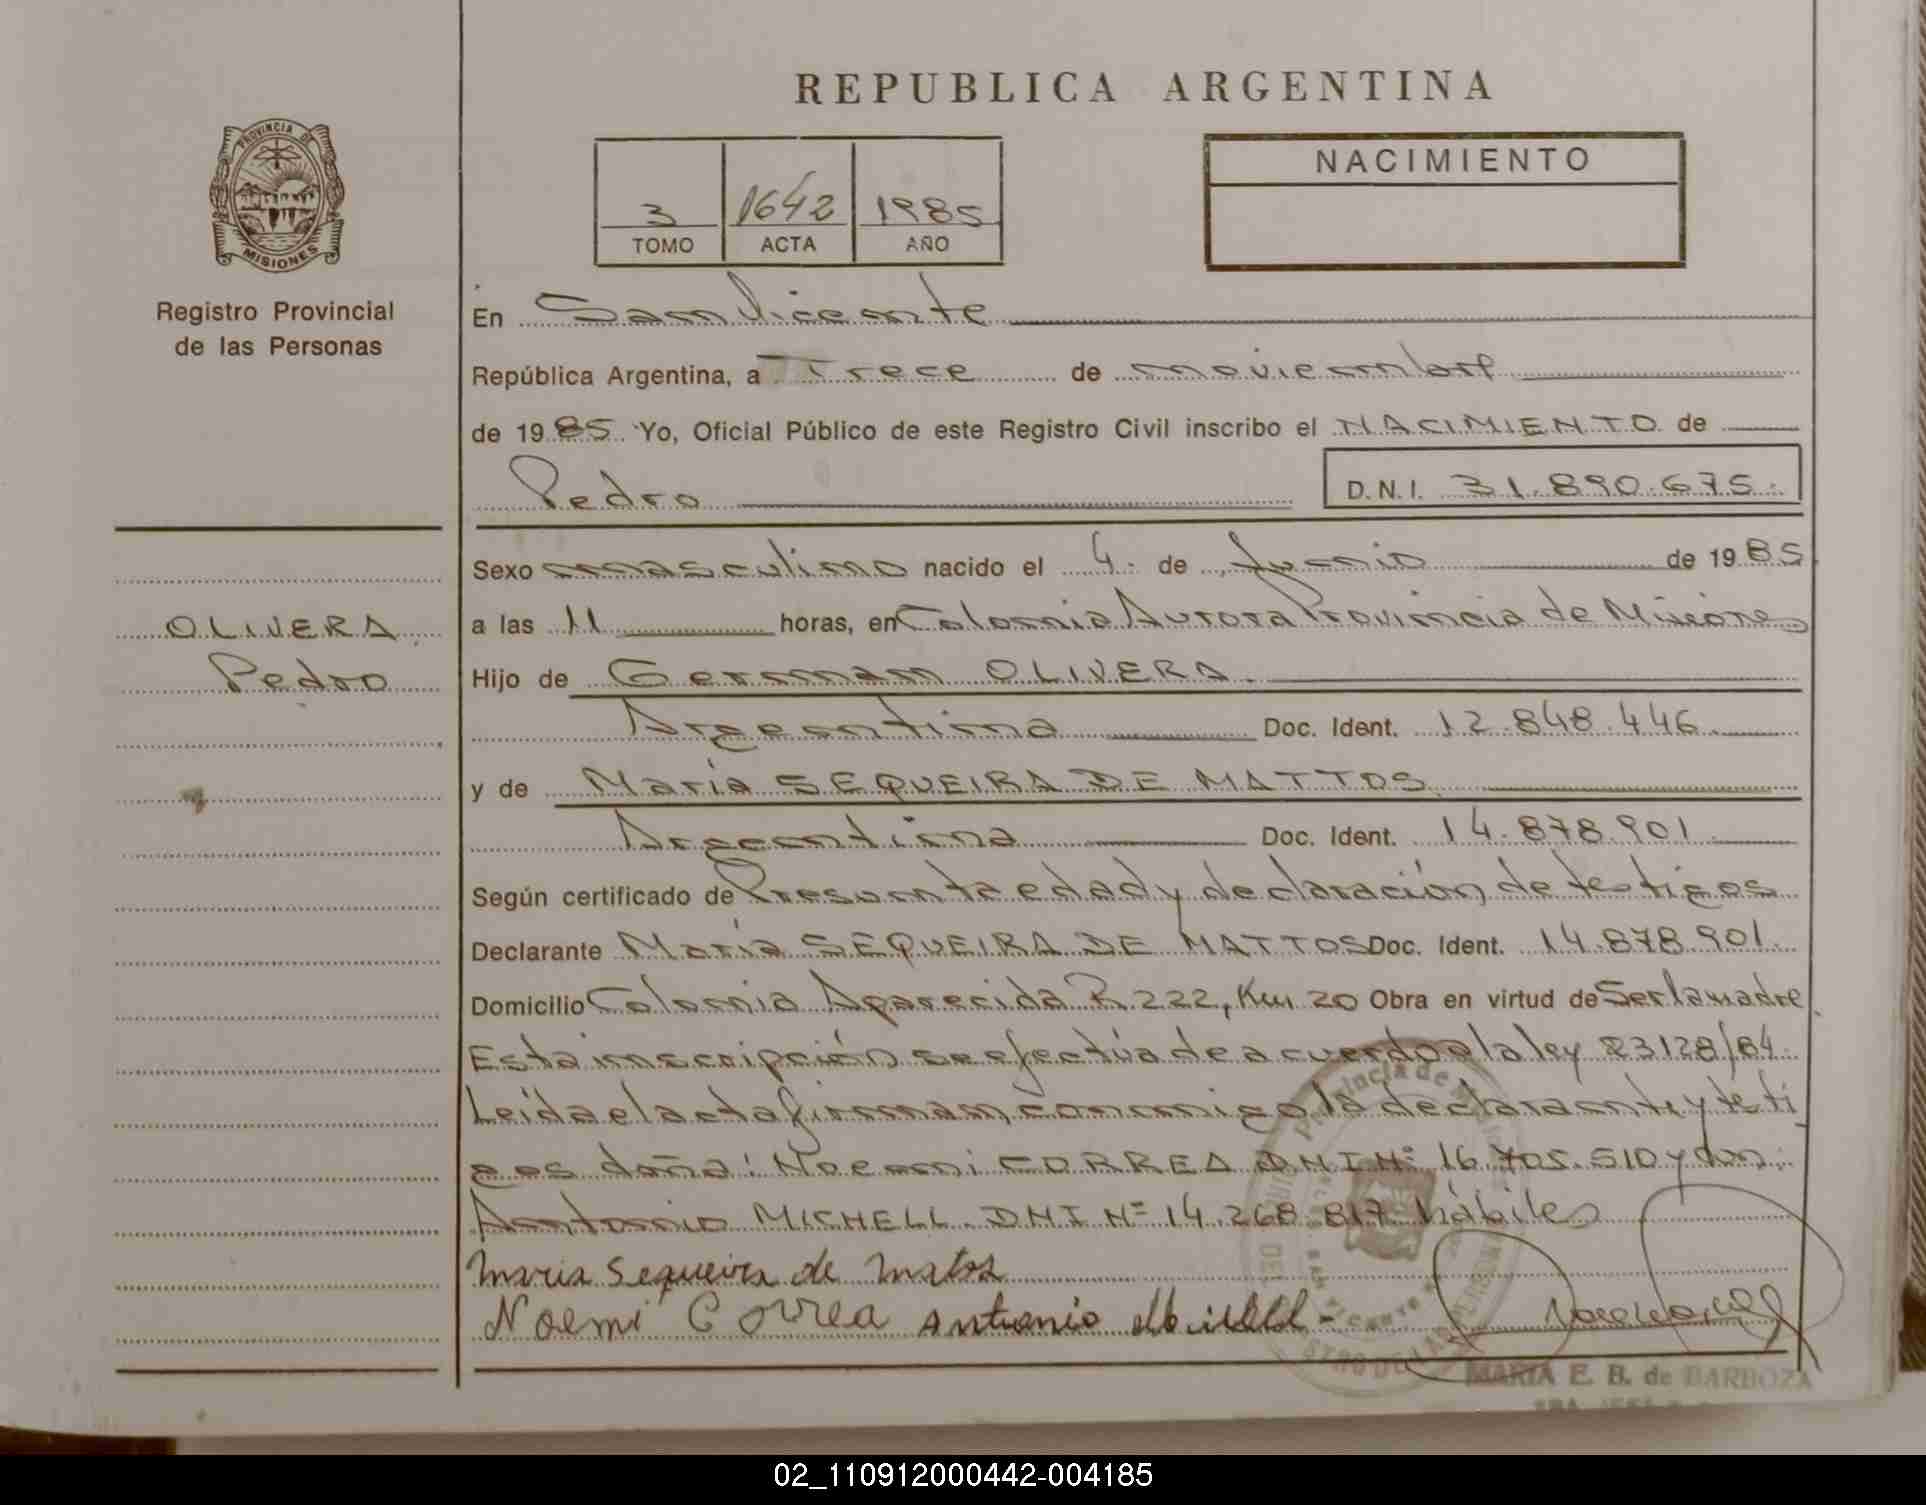 REPUBLICA ARGENTINA
PROVINCIA DE
MISIONES
Registro Provincial
de las Personas
3 1642 1985
TOMO ACTA AÑO
NACIMIENTO
En San Vicente
República Argentina, a Trece de noviembre
de 1985 Yo, Oficial Público de este Registro Civil inscribo el NACIMIENTO de
Pedro D.N.I. 31.890.675.
OLIVERA
Pedro
Sexo masculino nacido el 4 de Junio de 1985
a las 11 horas, en Colonia Aurora Provincia de Misiones
Hijo de German OLIVERA.
Argentina Doc. Ident. 12.848.446
y de María SEQUEIRA DE MATTOS
Argentina Doc. Ident. 14.878.901
Según certificado de Presunta edad y declaración de testigos
Declarante María SEQUEIRA DE MATTOS Doc. Ident. 14.878.901.
Domicilio Colonia Aparecida R. 222, Km. 20 Obra en virtud de Ser la madre
Esta inscripción se efectúa de acuerdo a la ley 23128/84.
Leída el acta firman, conmigo la declarante y testi
gos doña: Noemi CORREA DNI Nº 16.705.510 y don:
Antonio MICHELL DNI Nº 14.268.817 hábiles
Maria Sequeira de Matos
Noemi Correa Antonio Michell
MARIA E. B. de BARBOZA
02_110912000442-004185